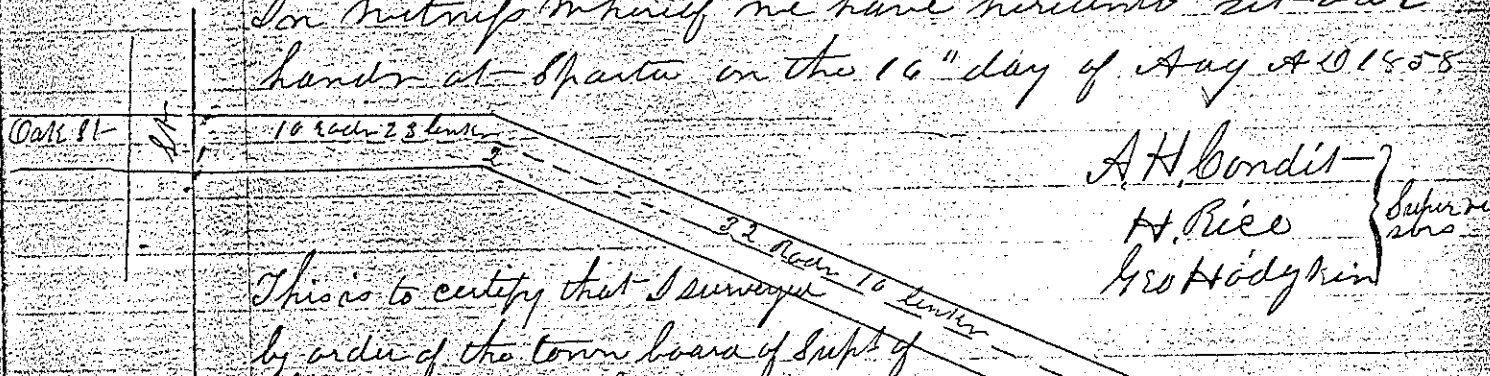 In witness whereof we have hereunto set our
hands at Sparta on the 16" day of Aug A D 1858
Oak St
St
10 Rods 23 links
2
A. H. Condit
H. Rice
Geo Hodgkin
Supervi
sors
32 Rods 10 links
This is to certify that I surveyed
by order of the town board of Supt of